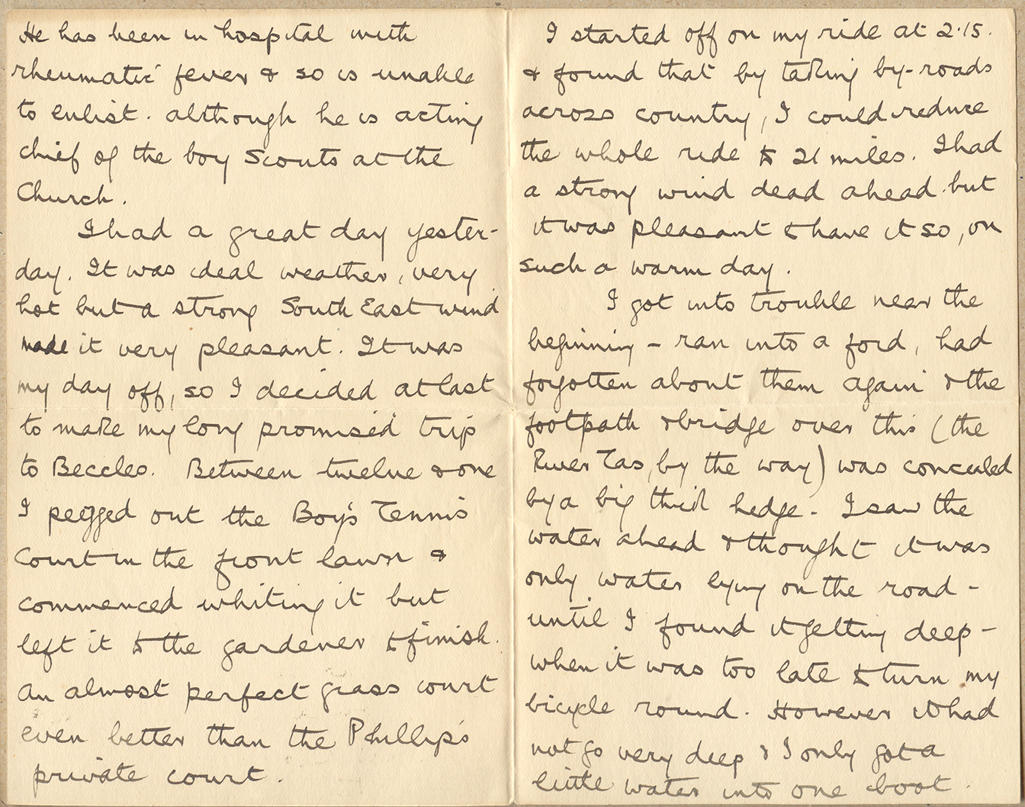 He has been in hospital with
rheumatic fever & so is unable
to enlist. although he is acting
chief of the boy Scouts at the
Church.
I had a great day yester-
day. It was ideal weather, very
hot but a strong South East wind
made it very pleasant. It was
my day off, so I decided at last
to make my long promised trip
to Beccles. Between twelve & one
I pegged out the Boy's Tennis
Court in the front lawn &
commenced whiting it but
left it to the gardener to finish.
an almost perfect grass court
even better than the Phillips
private court.
I started off on my ride at 2.15.
& found that by taking by-roads
across country, I could reduce
the whole ride to 21 miles. I had
a strong wind dead ahead but
it was pleasant to have it so, on
such a warm day.
I got into trouble near the
beginning - ran into a ford, had
forgotten about them again & the
footpath & bridge over this (the
River Tas, by the way) was concealed
by a big thick hedge. I saw the
water ahead & thought it was
only water lying on the road -
until I found it getting deep -
when it was too late to turn my
bicycle round. However it had
not go very deep & I only got a
little water into one boot.